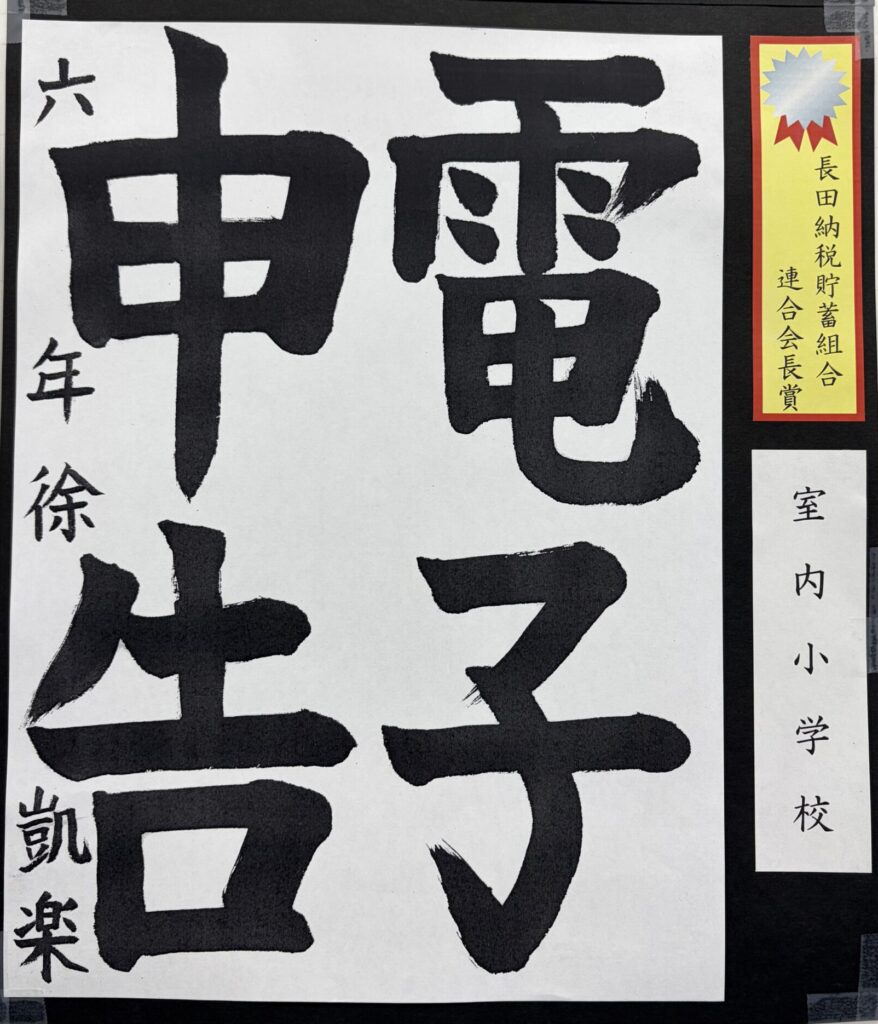 長田納税貯蓄組合
連合会長賞
室内小学校
電子
申告
六年 徐 凱楽